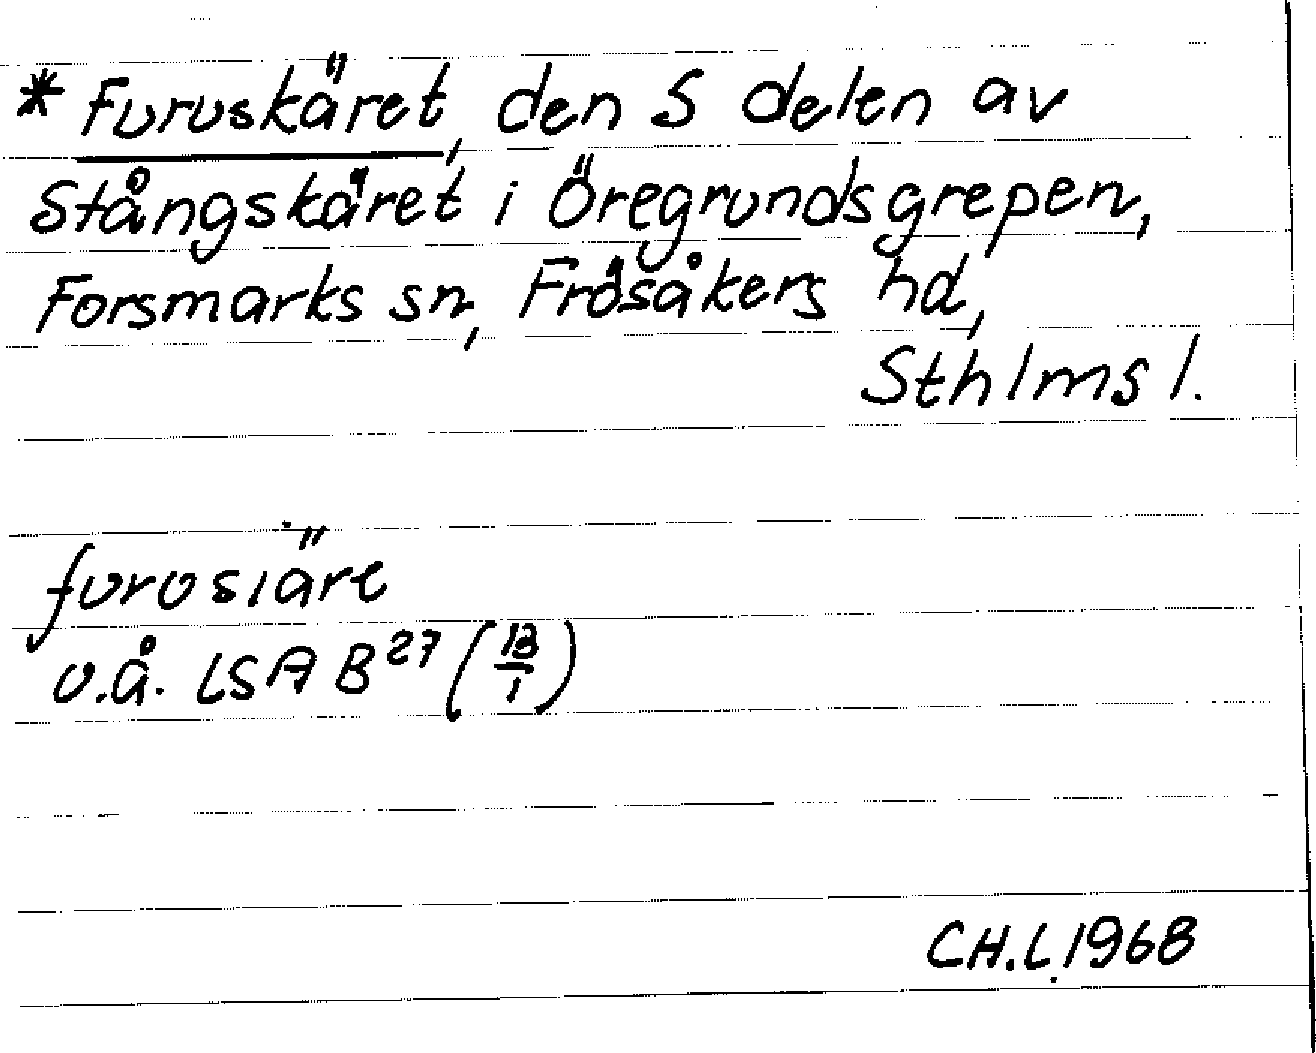 * Furuskäret, den S delen av
Stångskäret i Öregrundsgrepen,
Forsmarks sn, Frösåkers hd,
Sthlms l.
furosıäre
u.å. LSA B27 (13/1)
CH.L. 1968